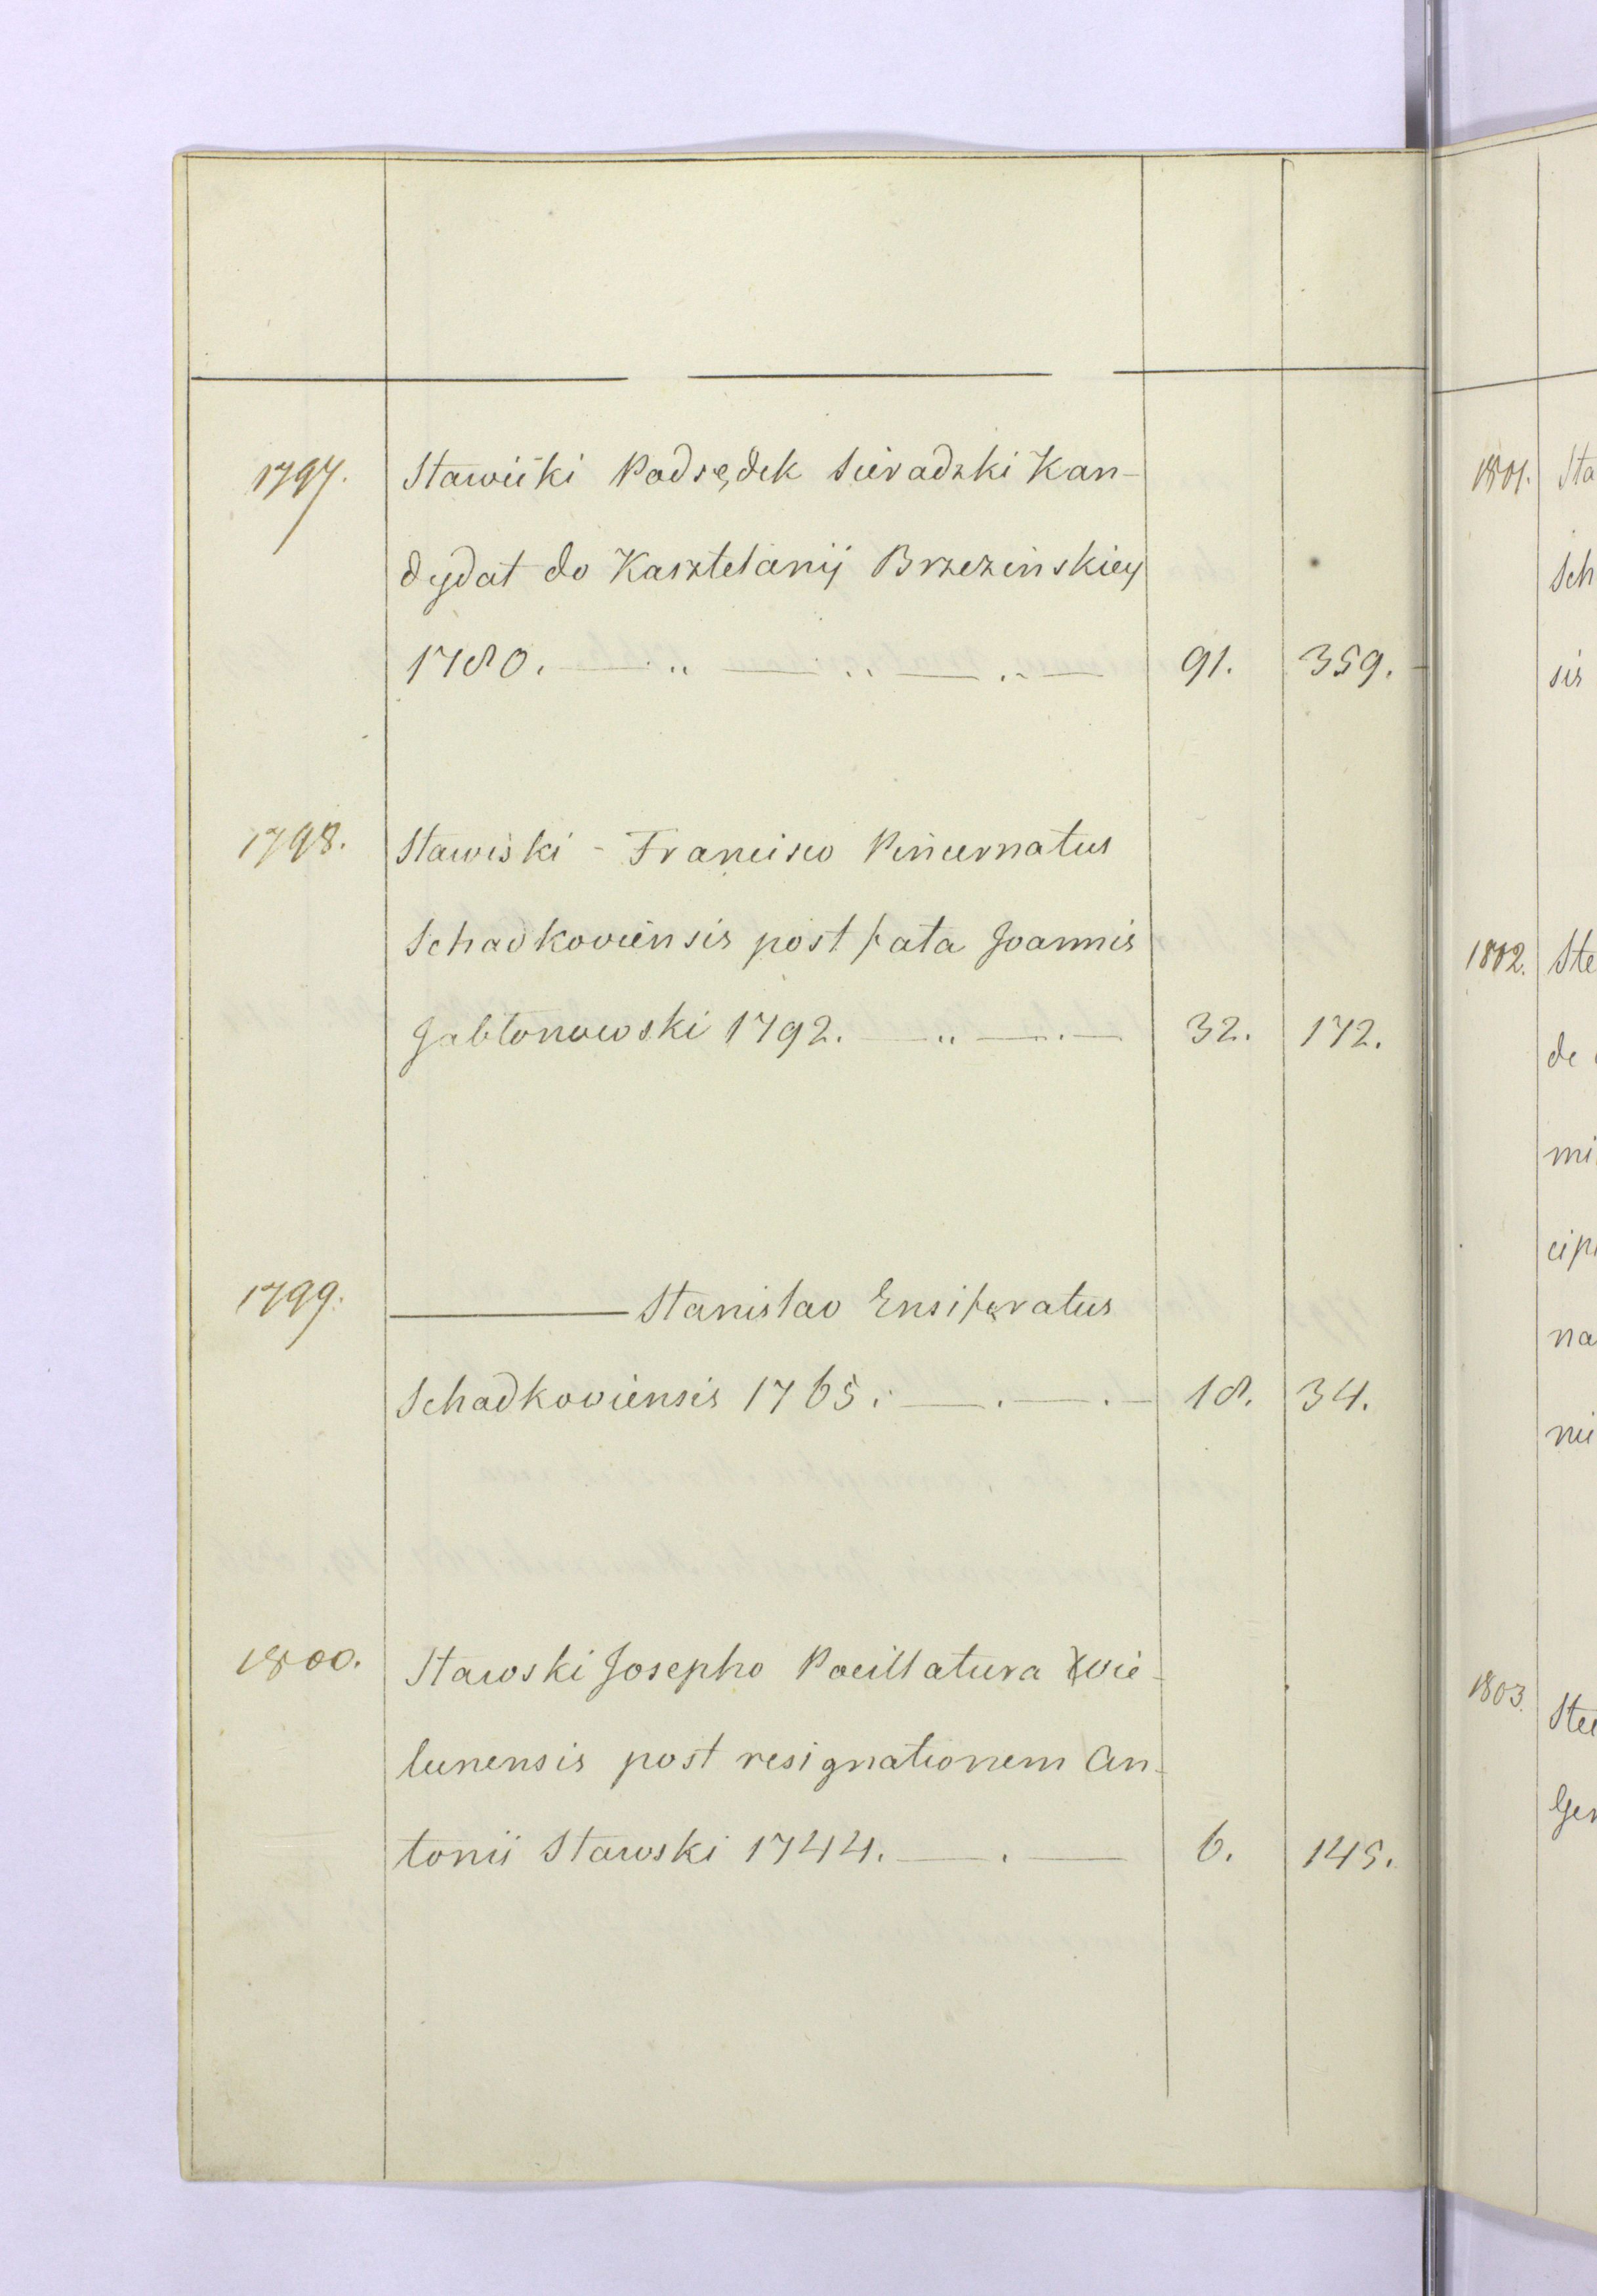 1797. Stawiski Podsędek Sieradzki Kan-
dydat do Kasztelanij Brzezinskiey
1780. 91. 359.
1798. Stawiski - Francisco Pincernatus
Schadkoviensis post fata Joannis
Jabłonowski 1792. 32. 172.
1799. Stanislao Ensiferatus
Schadkoviensis 1765. 18. 34.
1800. Stawski Josepho Pocillatura Wie-
lunensis post resignationem An-
tonii Stawski 1744. 6. 145.
1801. Sta
Sch
sis
1802. Ste
de
mi
cip
na
ni
1803. Ste
Gen